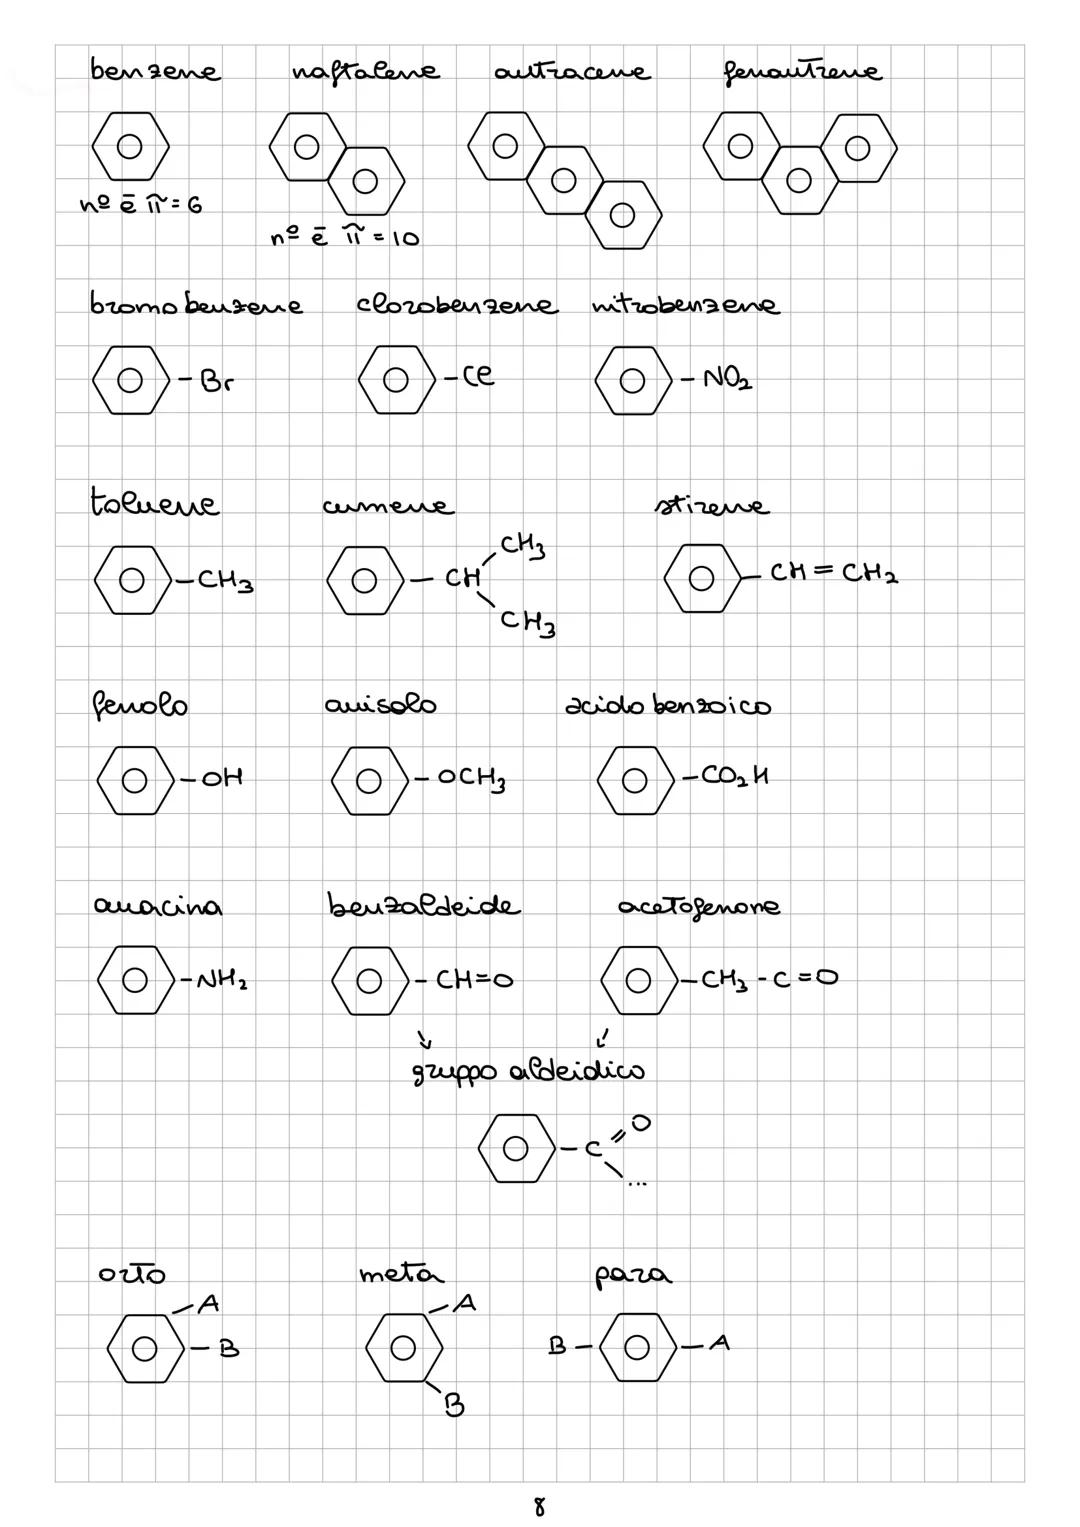 benzene naftalene antracene fenantrene
nº ē π = 6
nº ē π = 10
bromobenzene clorobenzene nitrobenzene
-Br -Cl -NO₂
toluene cumene stirene
CH₃
-CH₃ -CH -CH=CH₂
CH₃
fenolo anisolo acido benzoico
-OH -OCH₃ -CO₂H
anacina benzaldeide acetofenone
-NH₂ -CH=O -CH₃-C=O
↘ ↙
gruppo aldeidico
O
-C
...
orto meta para
-A -A
-B B- -A
B
8